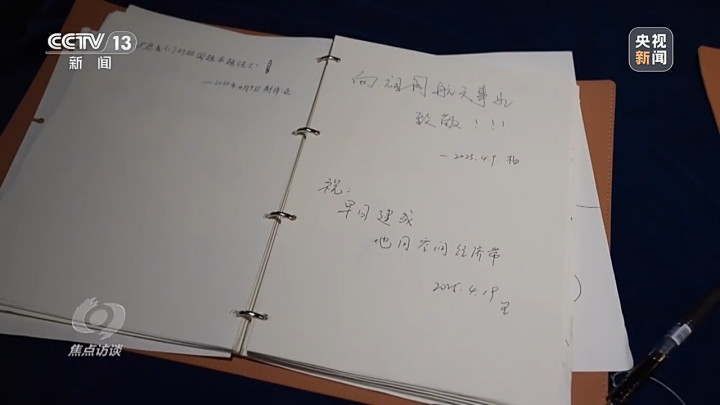 CCTV 13
新闻
央视
新闻
向祖国航天事业
致敬！！！
—2025.4.9 杨
祝：
早日建成
地月空间经济带
2025.4.19
王
焦点访谈